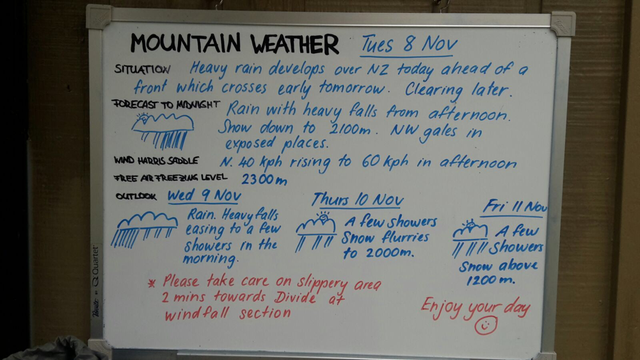 MOUNTAIN WEATHER Tues 8 Nov
SITUATION Heavy rain develops over NZ today ahead of a
front which crosses early tomorrow. Clearing later.
FORECAST TO MIDNIGHT Rain with heavy falls from afternoon.
Snow down to 2100m. NW gales in
exposed places.
WIND HARRIS SADDLE N. 40 kph rising to 60 kph in afternoon
FREE AIR FREEZING LEVEL 2300m
OUTLOOK Wed 9 Nov
Rain. Heavy falls
easing to a few
showers in the
morning.
Thurs 10 Nov
A few showers
Snow flurries
to 2000m.
Fri 11 Nov
A few
Showers
Snow above
1200m.
* Please take care on slippery area
2 mins towards Divide at
windfall section
Enjoy your day